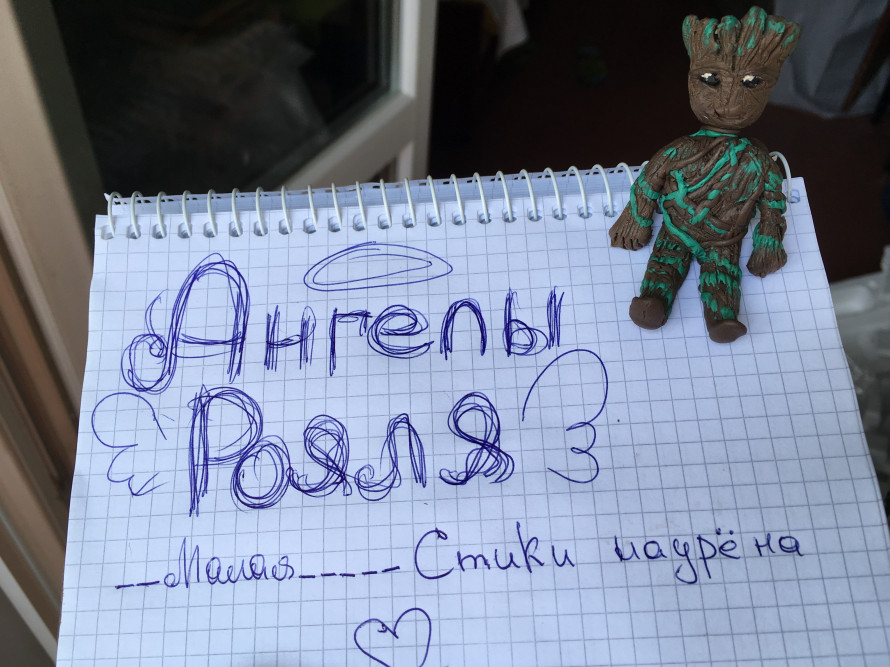 Ангелы
Рояля
__Малая_____Стики маурёна